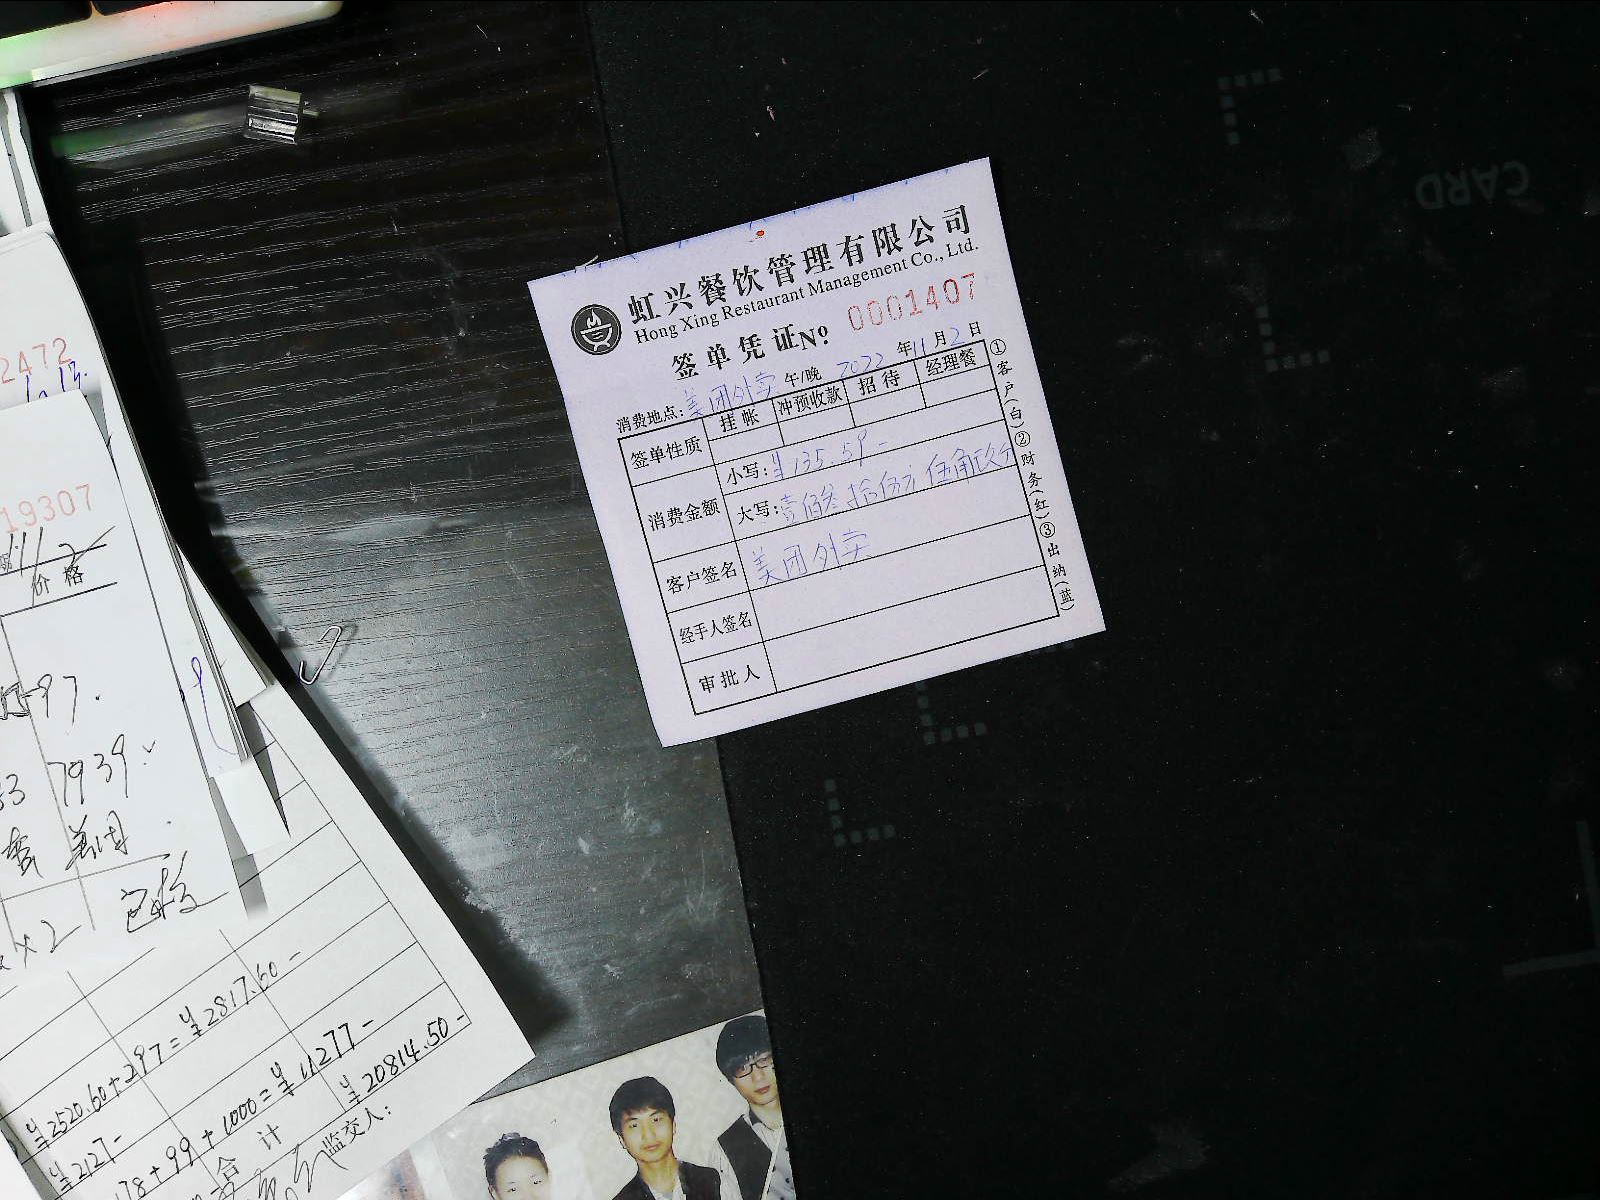 虹兴餐饮管理有限公司
Hong Xing Restaurant Management Co., Ltd.
签单凭证 № 0001407
消费地点: 美团外卖 午/晚 2022 年 11 月 2 日
签单性质 挂帐 冲预收款 招待 经理餐
消费金额 小写: ¥135.59-
大写: 壹佰叁拾伍元伍角玖分
客户签名 美团外卖
经手人签名
审批人
①客户(白)②财务(红)③出纳(蓝)
CARD
2472
19307
11/2
价格
97.
7939.
美团
x2
¥2520.60+297=¥2817.60-
¥2127-
178+99+1000=¥11277-
合计 ¥20814.50-
监交人: